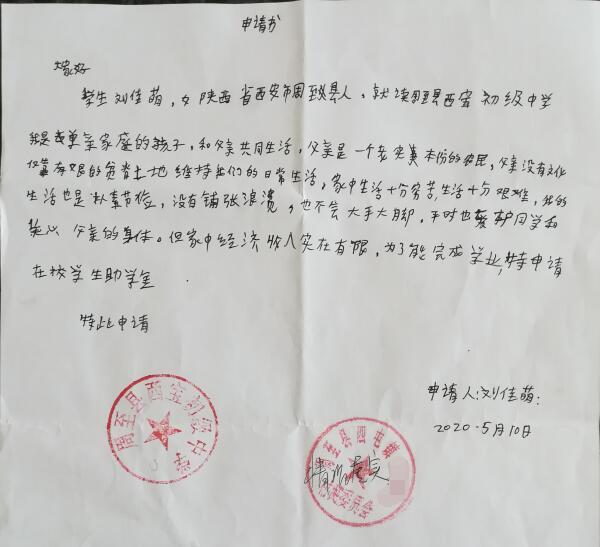 申请书
大家好
学生刘佳萌,女陕西省西安市周至县人,就读周至县西宝初级中学
我是单亲家庭的孩子,和父亲共同生活,父亲是一个老实本份的农民,父亲没有文化
仅靠有限的贫脊土地维持我们的日常生活,家中生活十份穷苦,生活十分艰难,我的
生活也是朴素节俭,没有铺张浪费,也不会大手大脚,平时也爱护同学和
关心父亲的身体。但家中经济收入实在有限,为了能完成学业,特申请
在校学生助学金
特此申请
申请人:刘佳萌:
2020·5月10日
周至县西宝初级中学
周至县四屯镇
情况属实
委员会